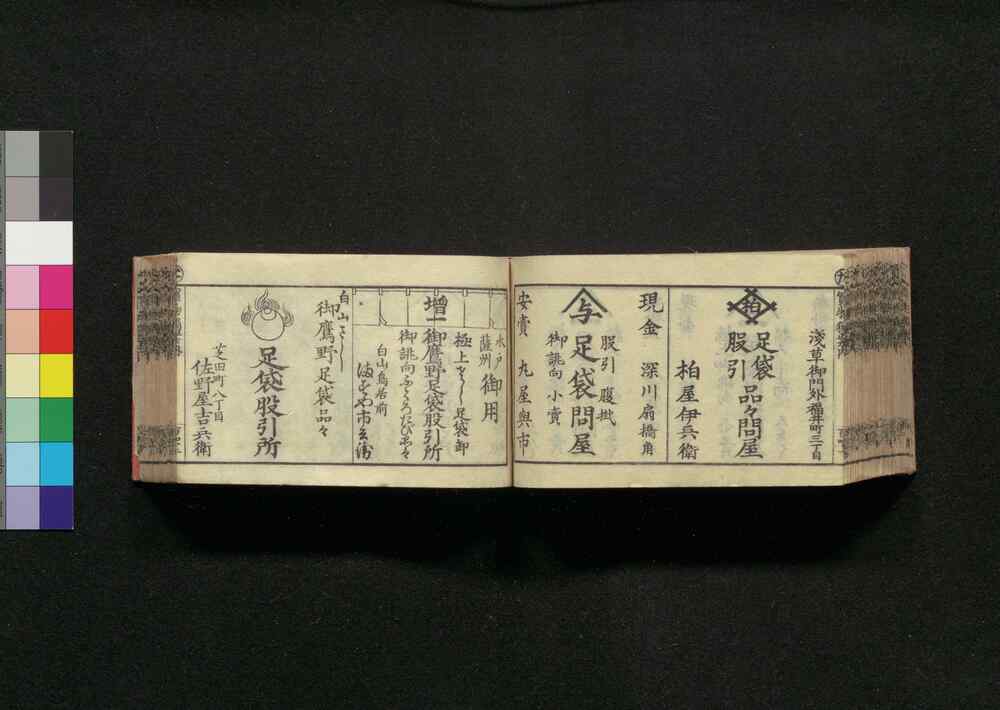 淺草御門外福井町三丁目
柏
足袋
股引
品々問屋
柏屋伊兵衛
現金
深川扇橋角
股引
腹掛
与
足袋問屋
御誂向
小賣
安賣
丸屋與市
水戸
薩州
御用
極上
足袋卸
増
御鷹野足袋股引所
御誂向
白山鳥居前
白山
御鷹野足袋品々
足袋股引所
芝田町八丁目
佐野屋吉兵衛